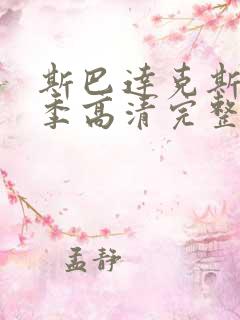 斯巴达克斯
季高清完整
孟静